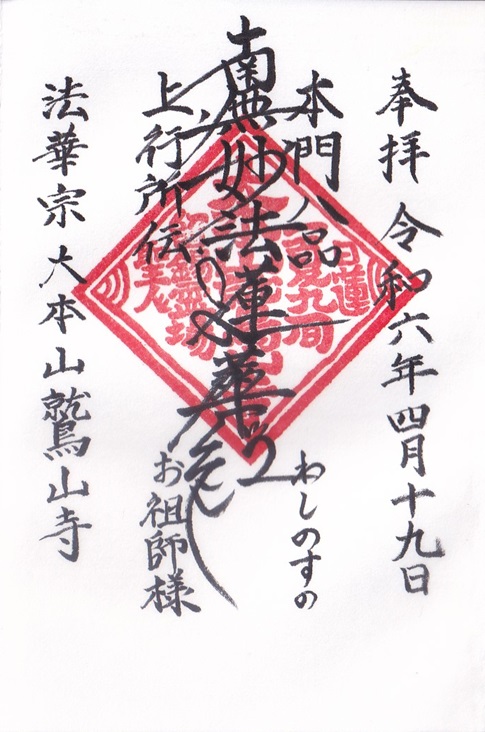 奉拝 令和六年四月十九日
本門八品
わしのすの
南無妙法蓮華経
上行所伝
お祖師様
法華宗大本山鷲山寺
日蓮
霊場